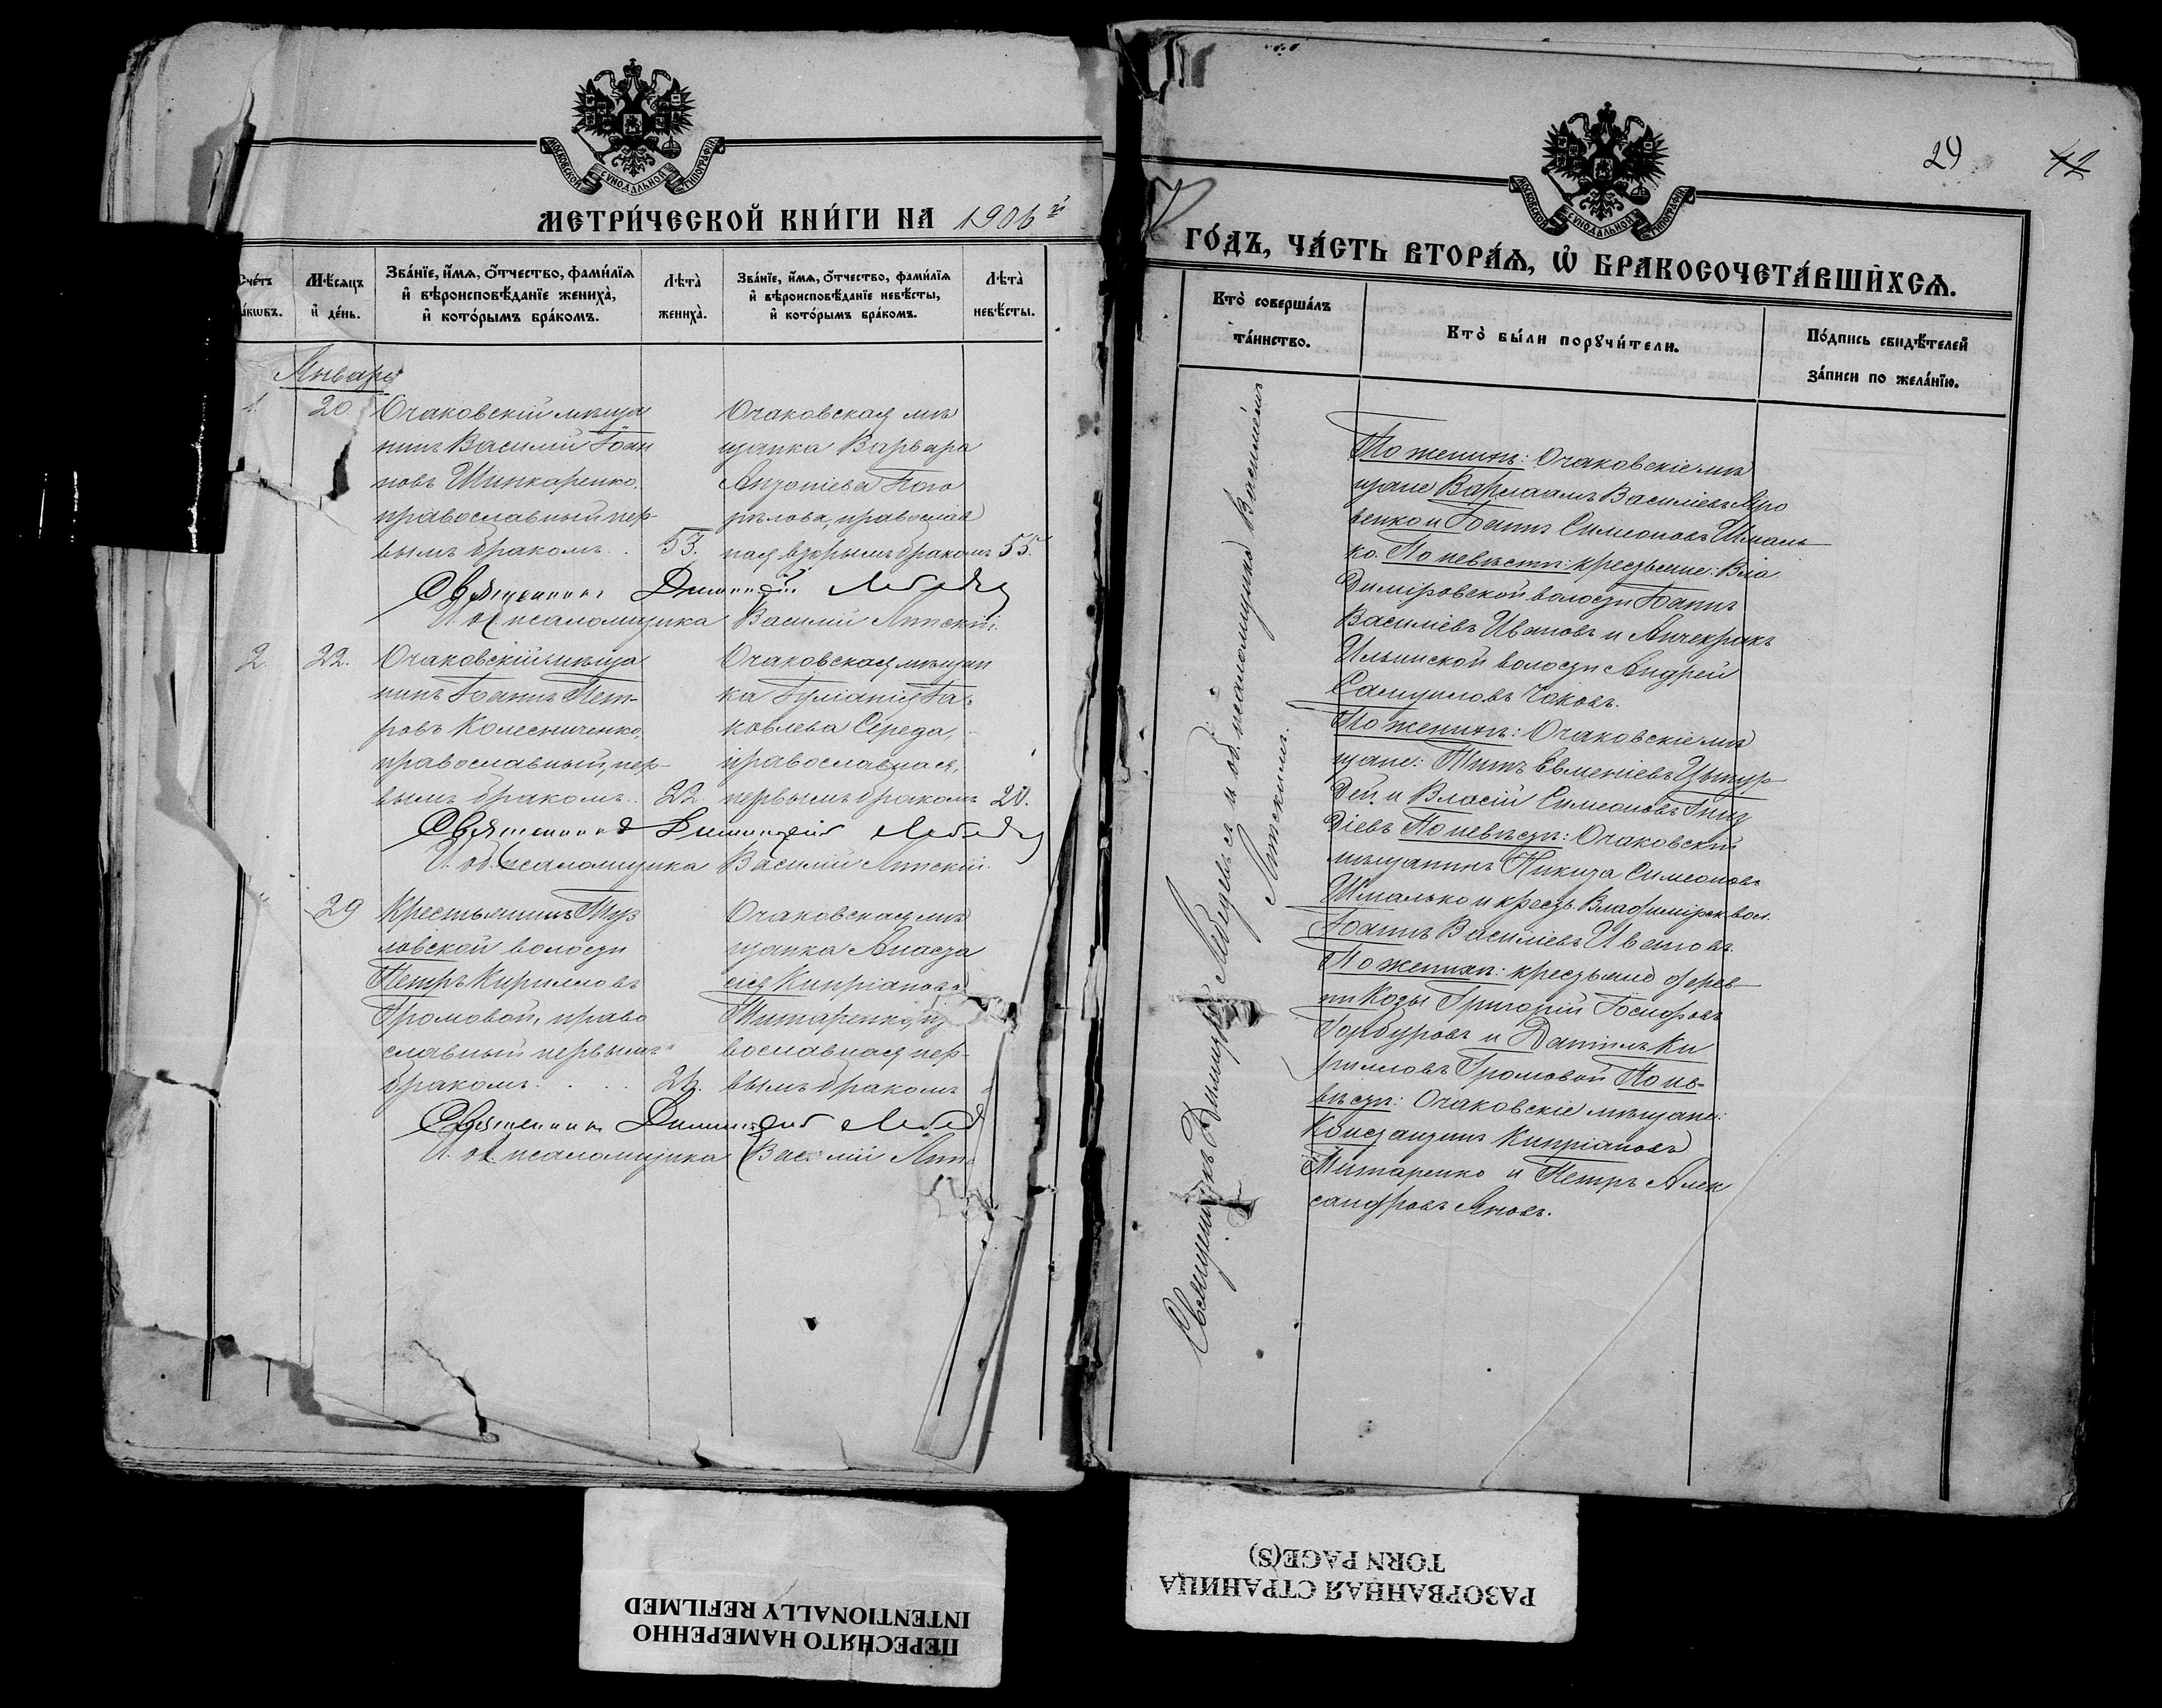 МОСКОВСКОЙ СѴНОДАЛЬНОЙ ТИПОГРАФІИ
МЕТРИ́ЧЕСКОЙ КНИ́ГИ НА 1906й
Счéтъ
Мѣ́сяцъ
и҆ де́нь.
Зва́нїе, и҆́мѧ, ѻ҆́тчество, фами́лїѧ
и҆ вѣроисповѣ́данїе жениха̀,
и҆ кото́рымъ бра́комъ.
Лѣта̀
жениха̀.
Зва́нїе, и҆́мѧ, ѻ҆́тчество, фами́лїѧ
и҆ вѣроисповѣ́данїе невѣ́сты,
и҆ кото́рымъ бра́комъ.
Лѣта̀
невѣ́сты.
Январь
1.
20.
Очаковскій мѣща
нинъ Василій Іоан
новъ Шинкаренко,
православный пер-
вымъ бракомъ.
53.
Очаковская мѣ
щанка Варвара
Антоніева Пого
рѣлова, православ
ная вторымъ бракомъ
55.
Священникъ Димитрій Лебедев
И. об. псаломщика Василій Липскій.
2.
22.
Очаковскій мѣща
нинъ Іоаннъ Пет-
ровъ Колесниченко,
православный, пер-
вымъ бракомъ.
22.
Очаковская мѣщан
ка Іуліанія Іа-
ковлева Середа,
православная,
первымъ бракомъ
20.
Священникъ Димитрій Лебедев
И. об. псаломщика Василій Липскій.
29
Крестьянинъ Туз
ловской волости
Петръ Кирилловъ
Громовой, право
славный первымъ
бракомъ.
Очаковская мѣ
щанка Анаста
сія Кипріанова
Титаренко,
вославная пер-
вымъ бракомъ
Священникъ Димитрій Лебед
И. об. псаломщика Василій Лип
29
42
МОСКОВСКОЙ СѴНОДАЛЬНОЙ ТИПОГРАФІИ
ГО́ДЪ, ЧА́СТЬ ВТОРА́Ѧ, Ѽ БРАКОСОЧЕТА́ВШИХСѦ.
Кто̀ соверша́лъ
та́инство.
Кто̀ бы́ли порꙋчи́тели.
По́дпись свидѣ́телей
за́писи по жела́нїю.
Священникъ Димитрій Лебедевъ и и. об. псаломщика Василіемъ
Липскимъ.
По женихѣ: Очаковскіе мѣ
щане Варлаамъ Василіевъ Миро
венко и Іоаннъ Симеоновъ Шмаль
ко. По невѣстѣ: крестьяне: Вла
диміровской волости Іоаннъ
Василіевъ Ивановъ и Анчекракъ
Ильинской волости Андрей
Самуиловъ Чоковъ.
По женихѣ: Очаковскіе мѣ
щане: Титъ Евменіевъ
и Власій Симеоновъ
По невѣстѣ: Очаковскій
мѣщанинъ Никита Симеоновъ
Шмалько и крест. Владимірск. вол.
Іоаннъ Василіевъ Ивановъ.
По женихѣ: крестьяне дерев
ни Козы Григорій Іосифовъ
Горбуровъ и Даніилъ Ки
рилловъ Громовой По не-
вѣстѣ: Очаковскіе мѣщане:
Константинъ Кипріановъ
Титаренко и Петръ Алек
сандровъ Яновъ.
ПЕРЕСНЯТО НАМЕРЕННО
INTENTIONALLY REFILMED
РАЗОРВАННАЯ СТРАНИЦА
TORN PAGE(S)